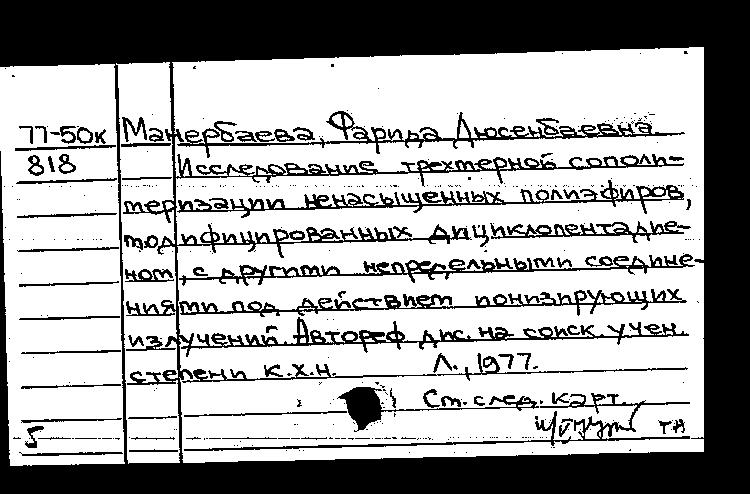 77-50к Манербаева, Фарида Дюсенбаевна
818 Исследование трехмерной сополи-
меризации ненасыщенных полиэфиров,
модифицированных дициклопентадие-
ном, с другими непредельными соедине-
ниями под действием ионизирующих
излучений. Автореф. дис. на соиск. учен.
степени к.х.н. Л., 1977.
См. след. карт.
5 ТН